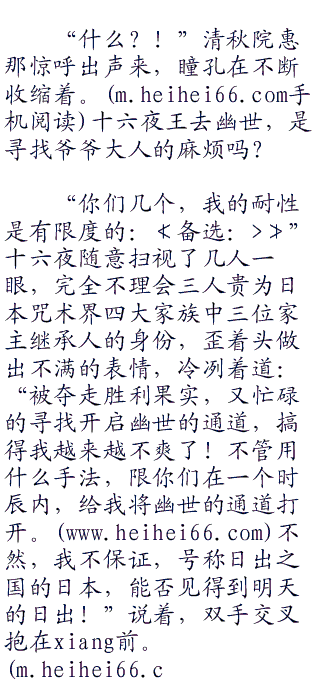 “什么?！”清秋院惠
那惊呼出声来，瞳孔在不断
收缩着。(m.heihei66.com手
机阅读)十六夜王去幽世，是
寻找爷爷大人的麻烦吗?
“你们几个，我的耐性
是有限度的：≮备选：>≯”
十六夜随意扫视了几人一
眼，完全不理会三人贵为日
本咒术界四大家族中三位家
主继承人的身份，歪着头做
出不满的表情，冷冽着道：
“被夺走胜利果实，又忙碌
的寻找开启幽世的通道，搞
得我越来越不爽了！不管用
什么手法，限你们在一个时
辰内，给我将幽世的通道打
开。(www.heihei66.com)不
然，我不保证，号称日出之
国的日本，能否见得到明天
的日出！”说着，双手交叉
抱在xiang前。
(m.heihei66.c